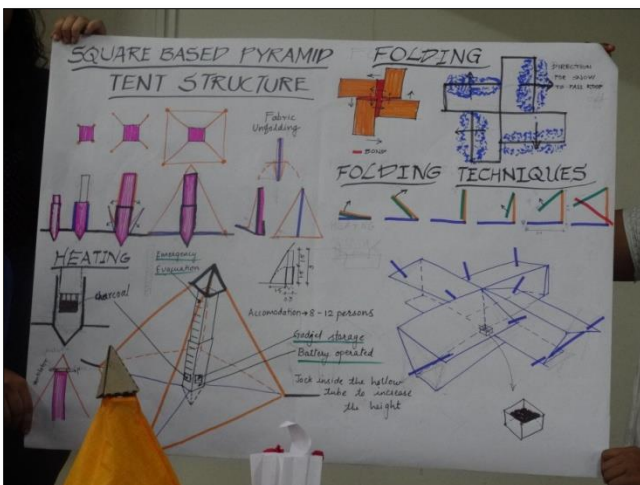 SQUARE BASED PYRAMID
TENT STRUCTURE
Fabric
Unfolding
FOLDING
DIRECTION
FOR SNOW
TO FALL
BOND
FOLDING TECHNIQUES
HEATING
charcoal
Emergency
Evacuation
Accomodation → 8-12 persons
Gadget storage
Battery operated
Jack inside the hollow
tube to increase
the height